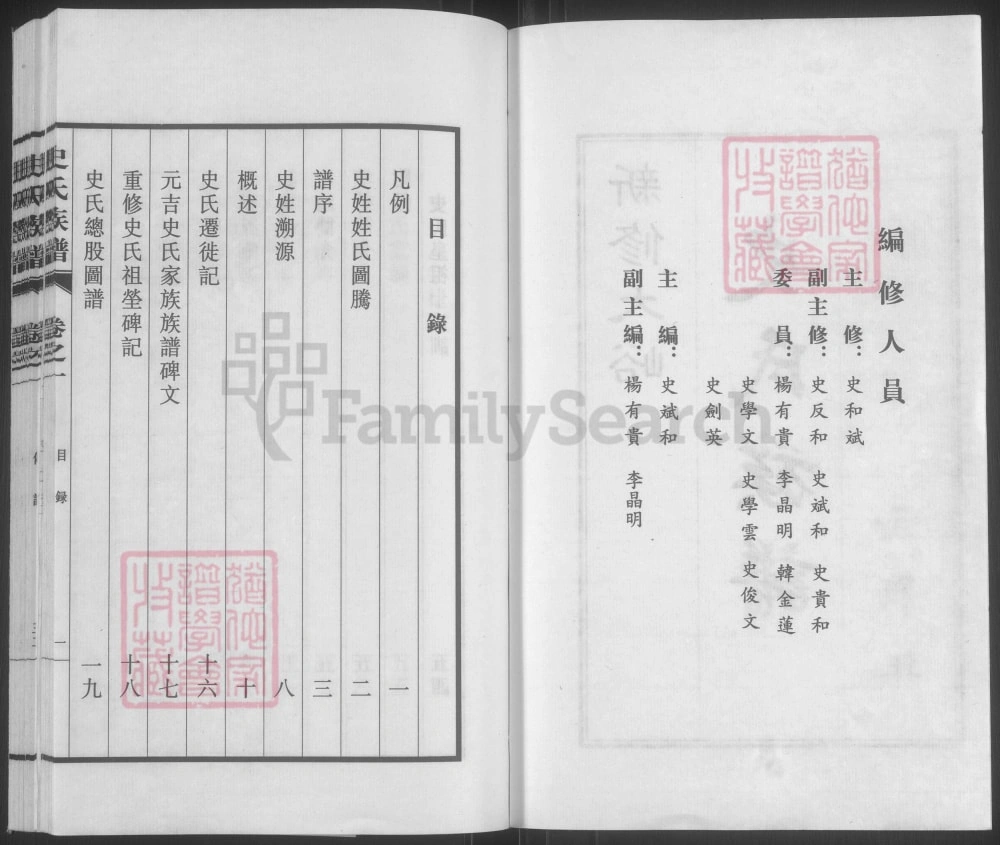 編修人員
主修：史和斌
副主修：史反和 史斌和 史貴和
委員：楊有貴 李晶明 韓金蓮
史學文 史學雲 史俊文
史劍英
主編：史斌和
副主編：楊有貴 李晶明
目錄
凡例 一
史姓姓氏圖騰 二
譜序 三
史姓溯源 八
概述 十
史氏遷徙記 十六
元吉史氏家族族譜碑文 十七
重修史氏祖塋碑記 十八
史氏總股圖譜 一九
史氏族譜 卷之一 目錄 一
FamilySearch